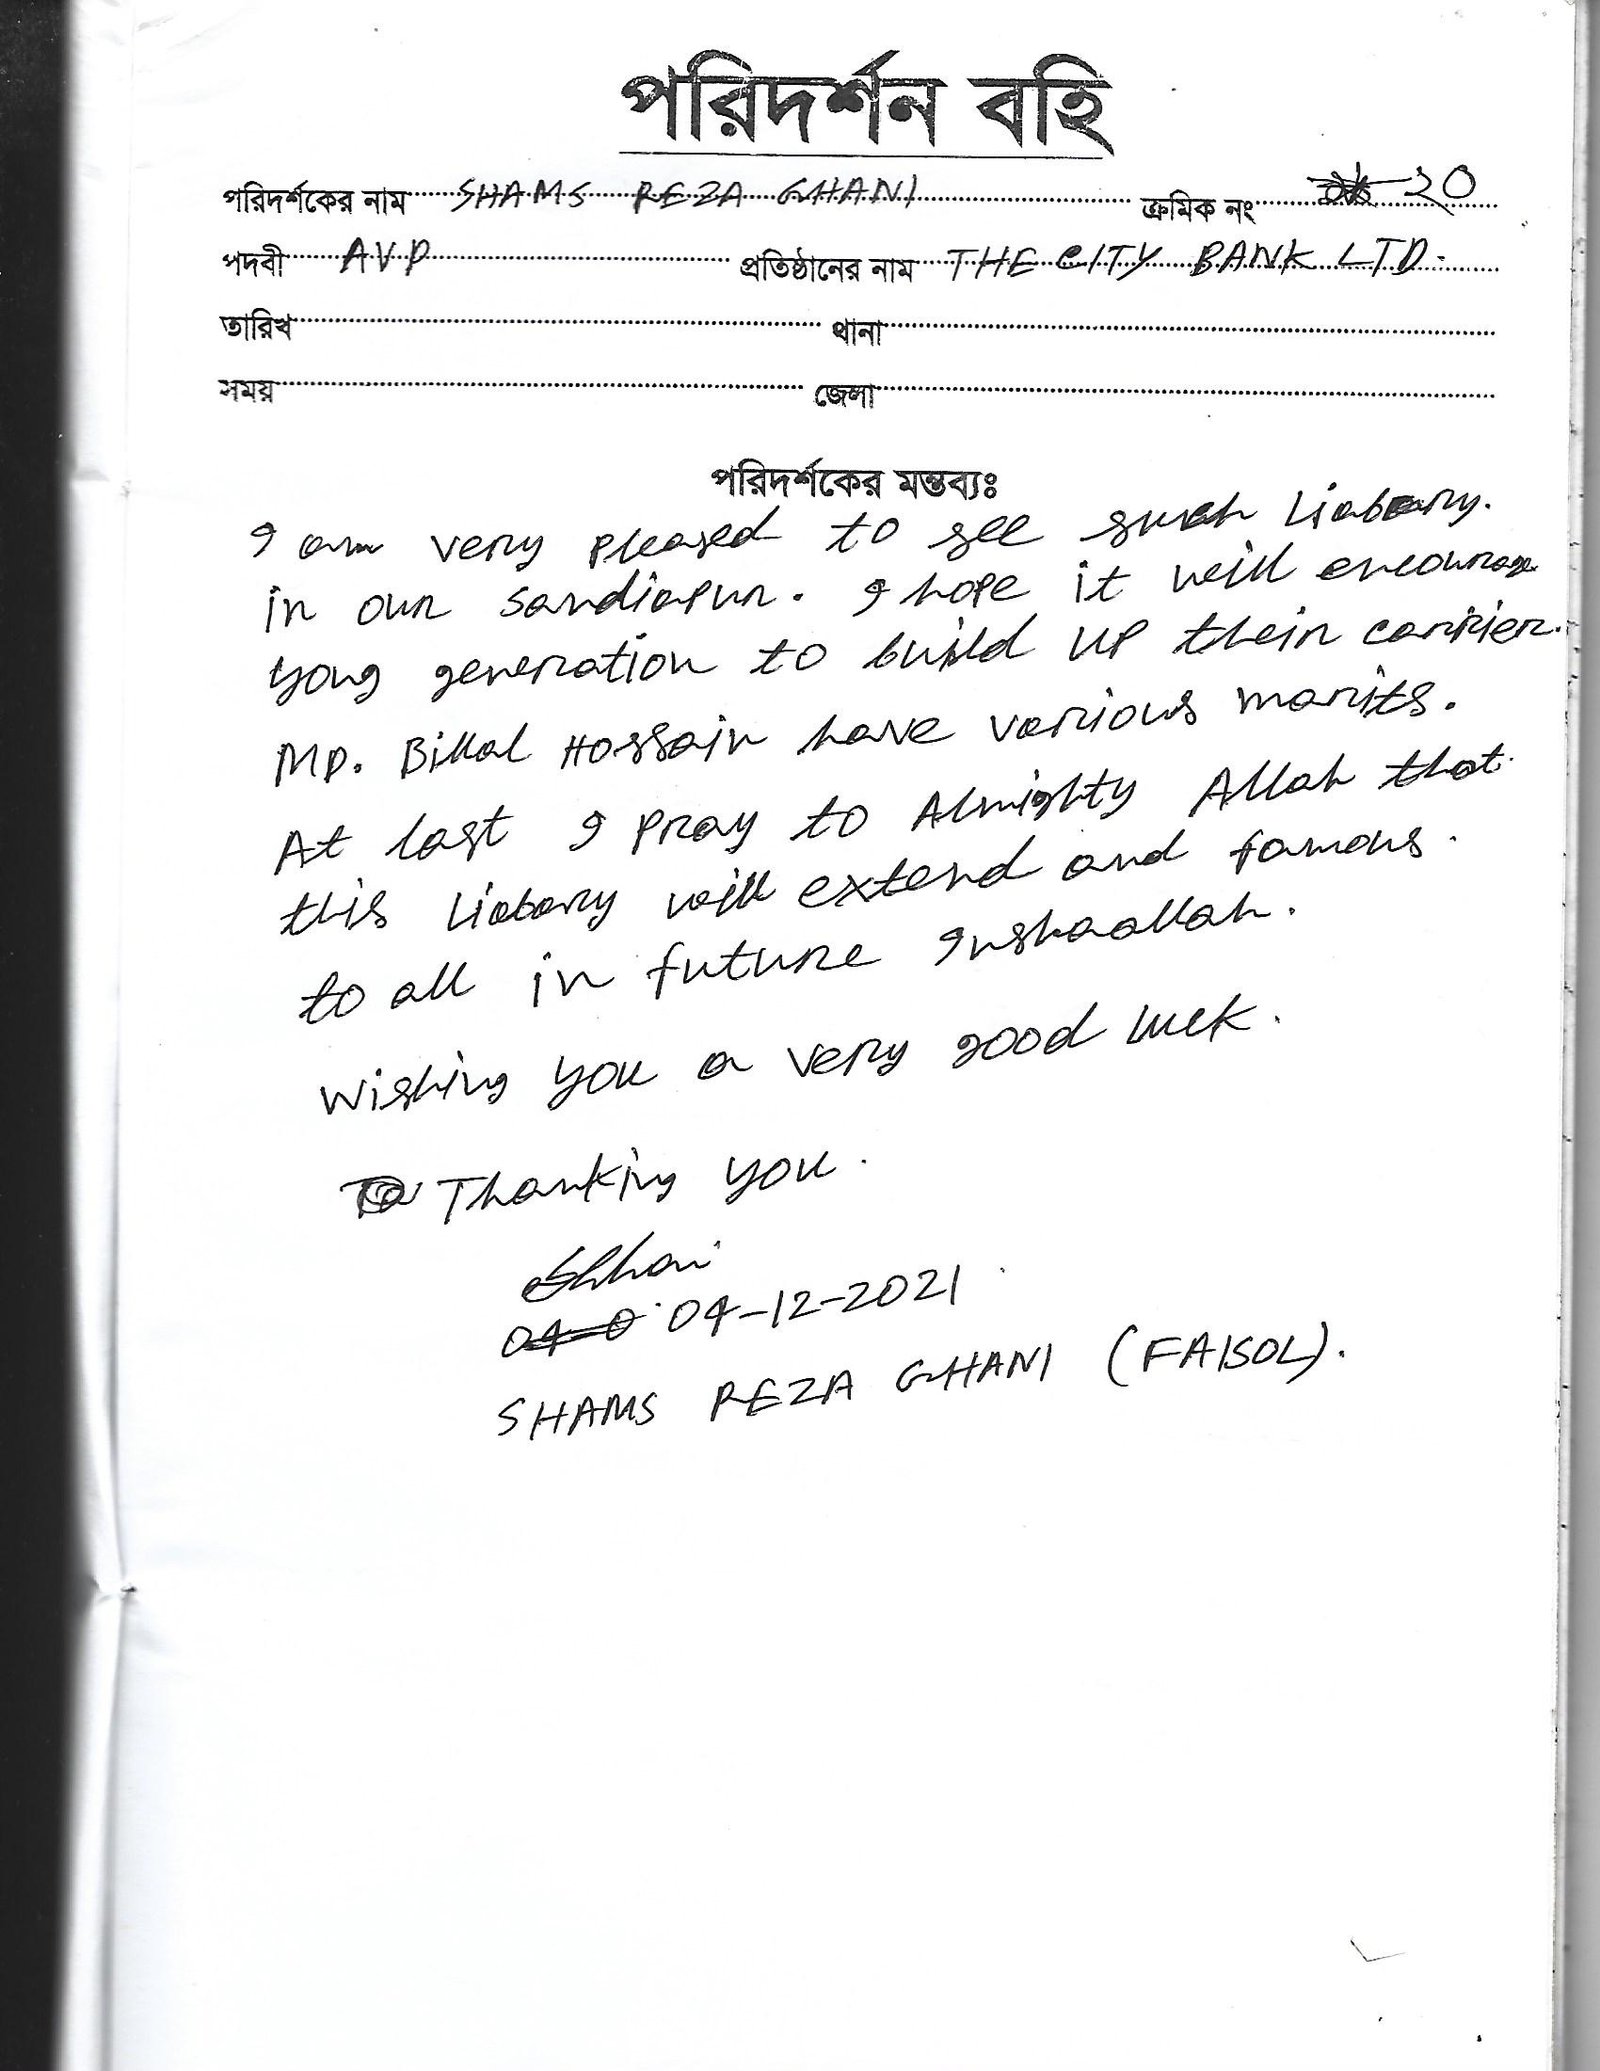 পরিদর্শন বহি
পরিদর্শকের নাম SHAMS REZA GHANI ক্রমিক নং ২০
পদবী AVP প্রতিষ্ঠানের নাম THE CITY BANK LTD.
তারিখ থানা
সময় জেলা
পরিদর্শকের মন্তব্যঃ
I am very pleased to see such Liabrary.
in our Sandiapur. I hope it will encourage
yong generation to build up their carrier.
MD. Billal Hossain have various marits.
At last I pray to Almighty Allah that
this Liabary will extend and famous.
to all in future Inshaallah.
Wishing you a very good luck.
Thanking you.
04-12-2021
SHAMS REZA GHANI (FAISOL).